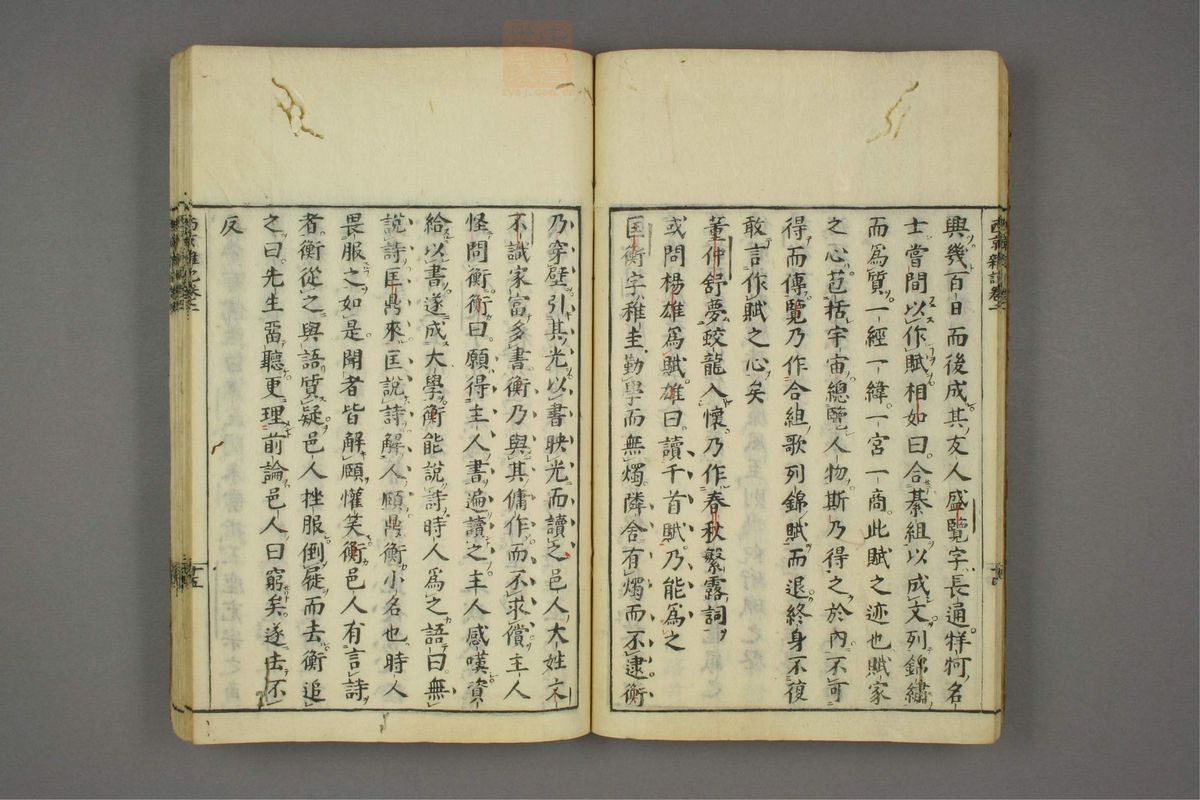 興幾百日而後成其友人盛覽字長通牂牁名
士嘗問以作賦相如曰合綦組以成文列錦繡
而爲質一經一緯一宮一商此賦之迹也賦家
之心苞括宇宙總覽人物斯乃得之於內不可
得而傳覽乃作合組歌列錦賦而退終身不復
敢言作賦之心矣
董仲舒夢蛟龍入懷乃作春秋繁露詞
或問楊雄爲賦雄曰讀千首賦乃能爲之
匡衡字稚圭勤學而無燭隣舍有燭而不逮衡
乃穿壁引其光以書映光而讀之邑人大姓文
不識家富多書衡乃與其傭作而不求償主人
怪問衡衡曰願得主人書遍讀之主人感嘆資
給以書遂成大學衡能說詩時人爲之語曰無
說詩匡鼎來匡說詩解人頤鼎衡小名也時人
畏服之如是聞者皆解頤懽笑衡邑人有言詩
者衡從之與語質疑邑人挫服倒屣而去衡追
之曰先生畱聽更理前論邑人曰窮矣遂去不
反
西京雜記卷之
十五